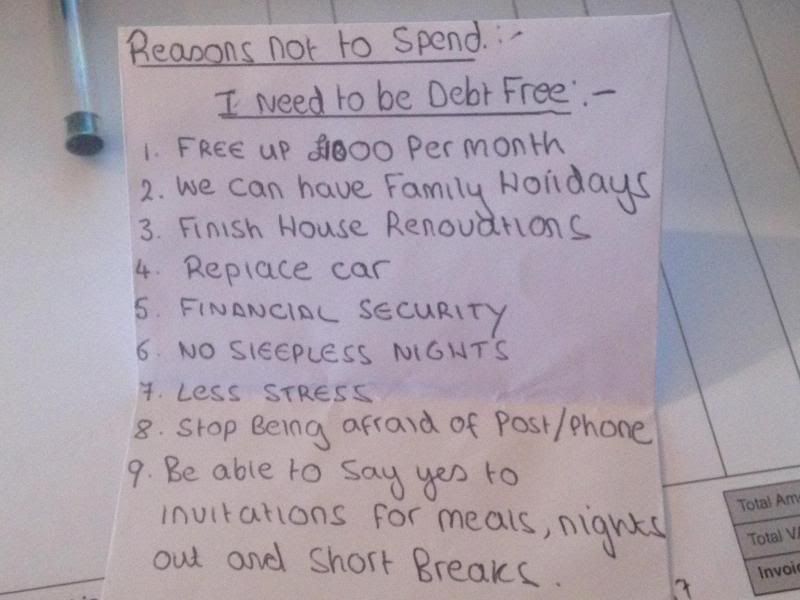 Reasons not to Spend.:-
I Need to be Debt Free:-
1. FREE UP £1000 Per month
2. we can have Family Holidays
3. Finish House Renovations
4. Replace car
5. FINANCIAL SECURITY
6. NO SLEEPLESS NIGHTS
7. LESS STRESS
8. Stop Being afraid of Post/Phone
9. Be able to say yes to
invitations for meals, nights
out and short Breaks.
Total
Total
7